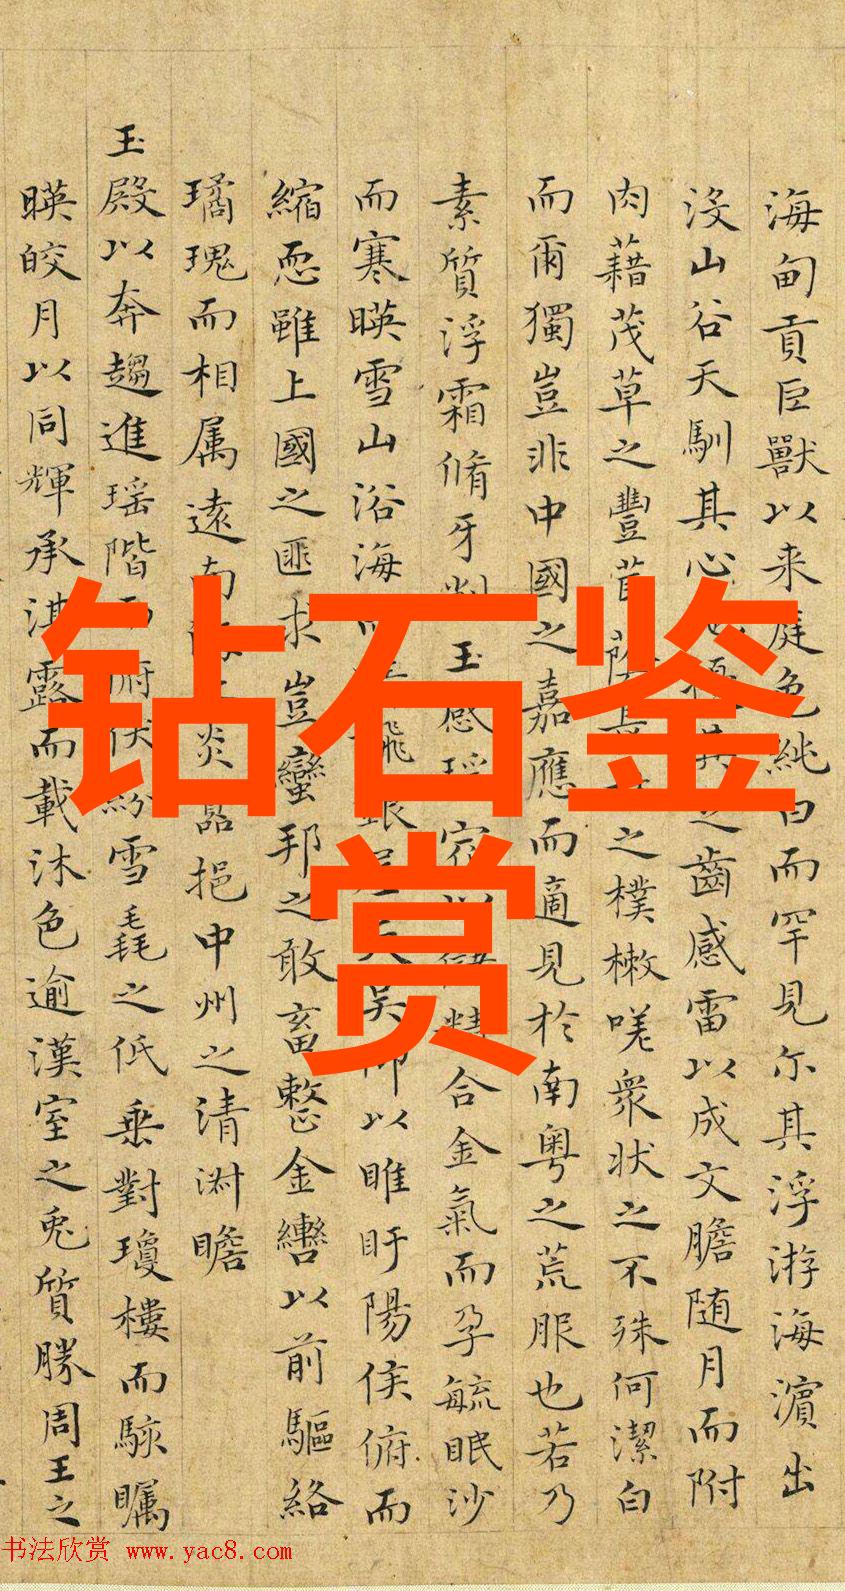 海甸貢巨獸以来庭色純白而罕見尔其浮游海濵出
沒山谷天馴其心極其之齒感雷以成文膽随月而附
肉藉茂草之豐茸蔭之樸樕嗟衆狀之不殊何潔白
而爾獨豈非中國之嘉應而適見於南粤之荒服也若乃
素質浮霜脩牙玉合金氣而孕毓眠沙
而寒暎雪山浴海飛銀天吳仰以睢盱陽侯俯而
縮恧雖上國之匪求豈蠻邦之敢畜整金轡以前驅絡
璚瑰而相属遠南炎挹中州之清渊瞻
玉殿以奔趨進瑶階而俯伏紛雪毳之低垂對瓊樓而駭矚
暎皎月以同輝承湛露而載沐色逾漢室之兎質勝周王之
钻石鉴
赏
书法欣赏 www.yac8.com